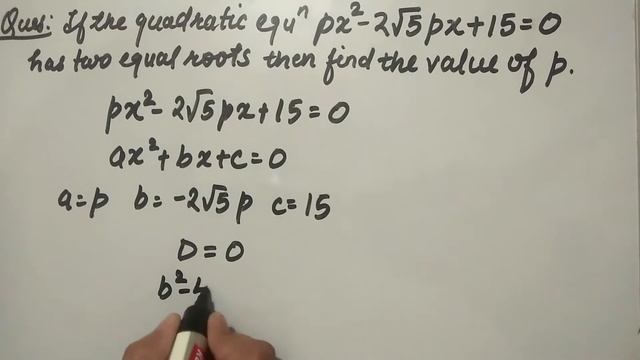 Ques: If the quadratic equⁿ px²-2√5px+15=0
has two equal roots then find the value of p.
px²-2√5px+15=0
ax²+bx+c=0
a=p b=-2√5p c=15
D=0
b²-4